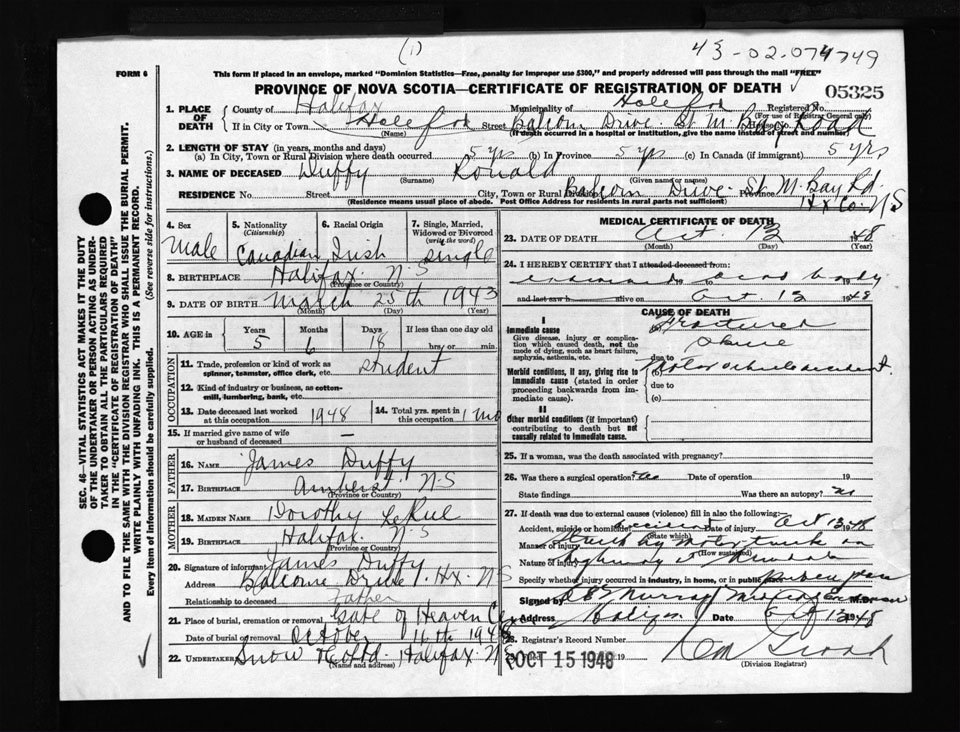 (1)
43-02.074749
FORM 6
This form if placed in an envelope, marked "Dominion Statistics—Free, penalty for improper use $300," and properly addressed will pass through the mail "FREE"
PROVINCE OF NOVA SCOTIA—CERTIFICATE OF REGISTRATION OF DEATH
05325
1. PLACE OF DEATH
County of Halifax
Municipality of
Registered No.
(For use of Registrar General only)
If in City or Town
(Name)
Street Balcom Drive. St M. Bay Road
House No.
(If death occurred in a hospital or institution, give the name instead of street and number)
2. LENGTH OF STAY (in years, months and days)
(a) In City, Town or Rural Division where death occurred 5 yrs (b) In Province 5 yrs (c) In Canada (if immigrant) 5 yrs
3. NAME OF DECEASED Duffy Ronald
(Surname) (Given name or names)
RESIDENCE No. Street City, Town or Rural Balcom Drive. St. M. Bay Rd.
Hx Co. N.S
(Residence means usual place of abode. Post Office Address for residents in rural parts not sufficient)
4. Sex Male
5. Nationality (Citizenship) Canadian
6. Racial Origin Irish
7. Single, Married, Widowed or Divorced (write the word) single
8. BIRTHPLACE Halifax N.S
(Province or Country)
9. DATE OF BIRTH March 25th 1943
(Month) (Day) (Year)
10. AGE is Years 5 Months 6 Days 18 If less than one day old hrs/or min.
OCCUPATION
11. Trade, profession or kind of work as spinner, teamster, office clerk, etc. Student
12. Kind of industry or business, as cotton-mill, lumbering, bank, etc.
13. Date deceased last worked at this occupation 1948
14. Total yrs. spent in this occupation 1 Mo
15. If married give name of wife or husband of deceased —
FATHER
16. NAME James Duffy
17. BIRTHPLACE Amherst N-S
(Province or Country)
MOTHER
18. MAIDEN NAME Dorothy
19. BIRTHPLACE Halifax N.S
(Province or Country)
20. Signature of informant James Duffy
Address Balcome Drive. Hx. N.S
Relationship to deceased Father
21. Place of burial, cremation or removal Gate of Heaven Cem
Date of burial or removal October 16th 1948
22. UNDERTAKER Snow & Co Ltd. Halifax. N.S.
(Name and address)
MEDICAL CERTIFICATE OF DEATH
23. DATE OF DEATH Oct. 13 1948
(Month) (Day) (Year)
24. I HEREBY CERTIFY that I attended deceased from:
examined dead body
and last saw h alive on Oct. 13 1948
CAUSE OF DEATH
I
Immediate cause
Give disease, injury or complication which caused death, not the mode of dying, such as heart failure, asphyxia, asthenia, etc.
Fractured
due to
Morbid conditions, if any, giving rise to immediate cause (stated in order proceeding backwards from immediate cause).
(b) Motor vehicle accident.
due to
(c)
II
Other morbid conditions (if important) contributing to death but not causally related to immediate cause.
25. If a woman, was the death associated with pregnancy?
26. Was there a surgical operation? Date of operation 19
State findings Was there an autopsy? no
27. If death was due to external causes (violence) fill in also the following:
Accident, suicide or homicide? accident Date of injury Oct 13 1948
(State which)
Manner of injury Struck by motor truck on
(How sustained)
Nature of injury highway
Specify whether injury occurred in industry, in home, or in public place
Signed by Murray M.D.
Address Halifax Date Oct 13 1948
28. Registrar's Record Number
OCT 15 1948 19
(Division Registrar)
SEC. 46—VITAL STATISTICS ACT MAKES IT THE DUTY OF THE UNDERTAKER OR PERSON ACTING AS UNDERTAKER TO OBTAIN ALL THE PARTICULARS REQUIRED IN THE "CERTIFICATE OF REGISTRATION OF DEATH" AND TO FILE THE SAME WITH THE DIVISION REGISTRAR WHO SHALL ISSUE THE BURIAL PERMIT.
WRITE PLAINLY WITH UNFADING INK. THIS IS A PERMANENT RECORD.
Every item of information should be carefully supplied. (See reverse side for instructions.)